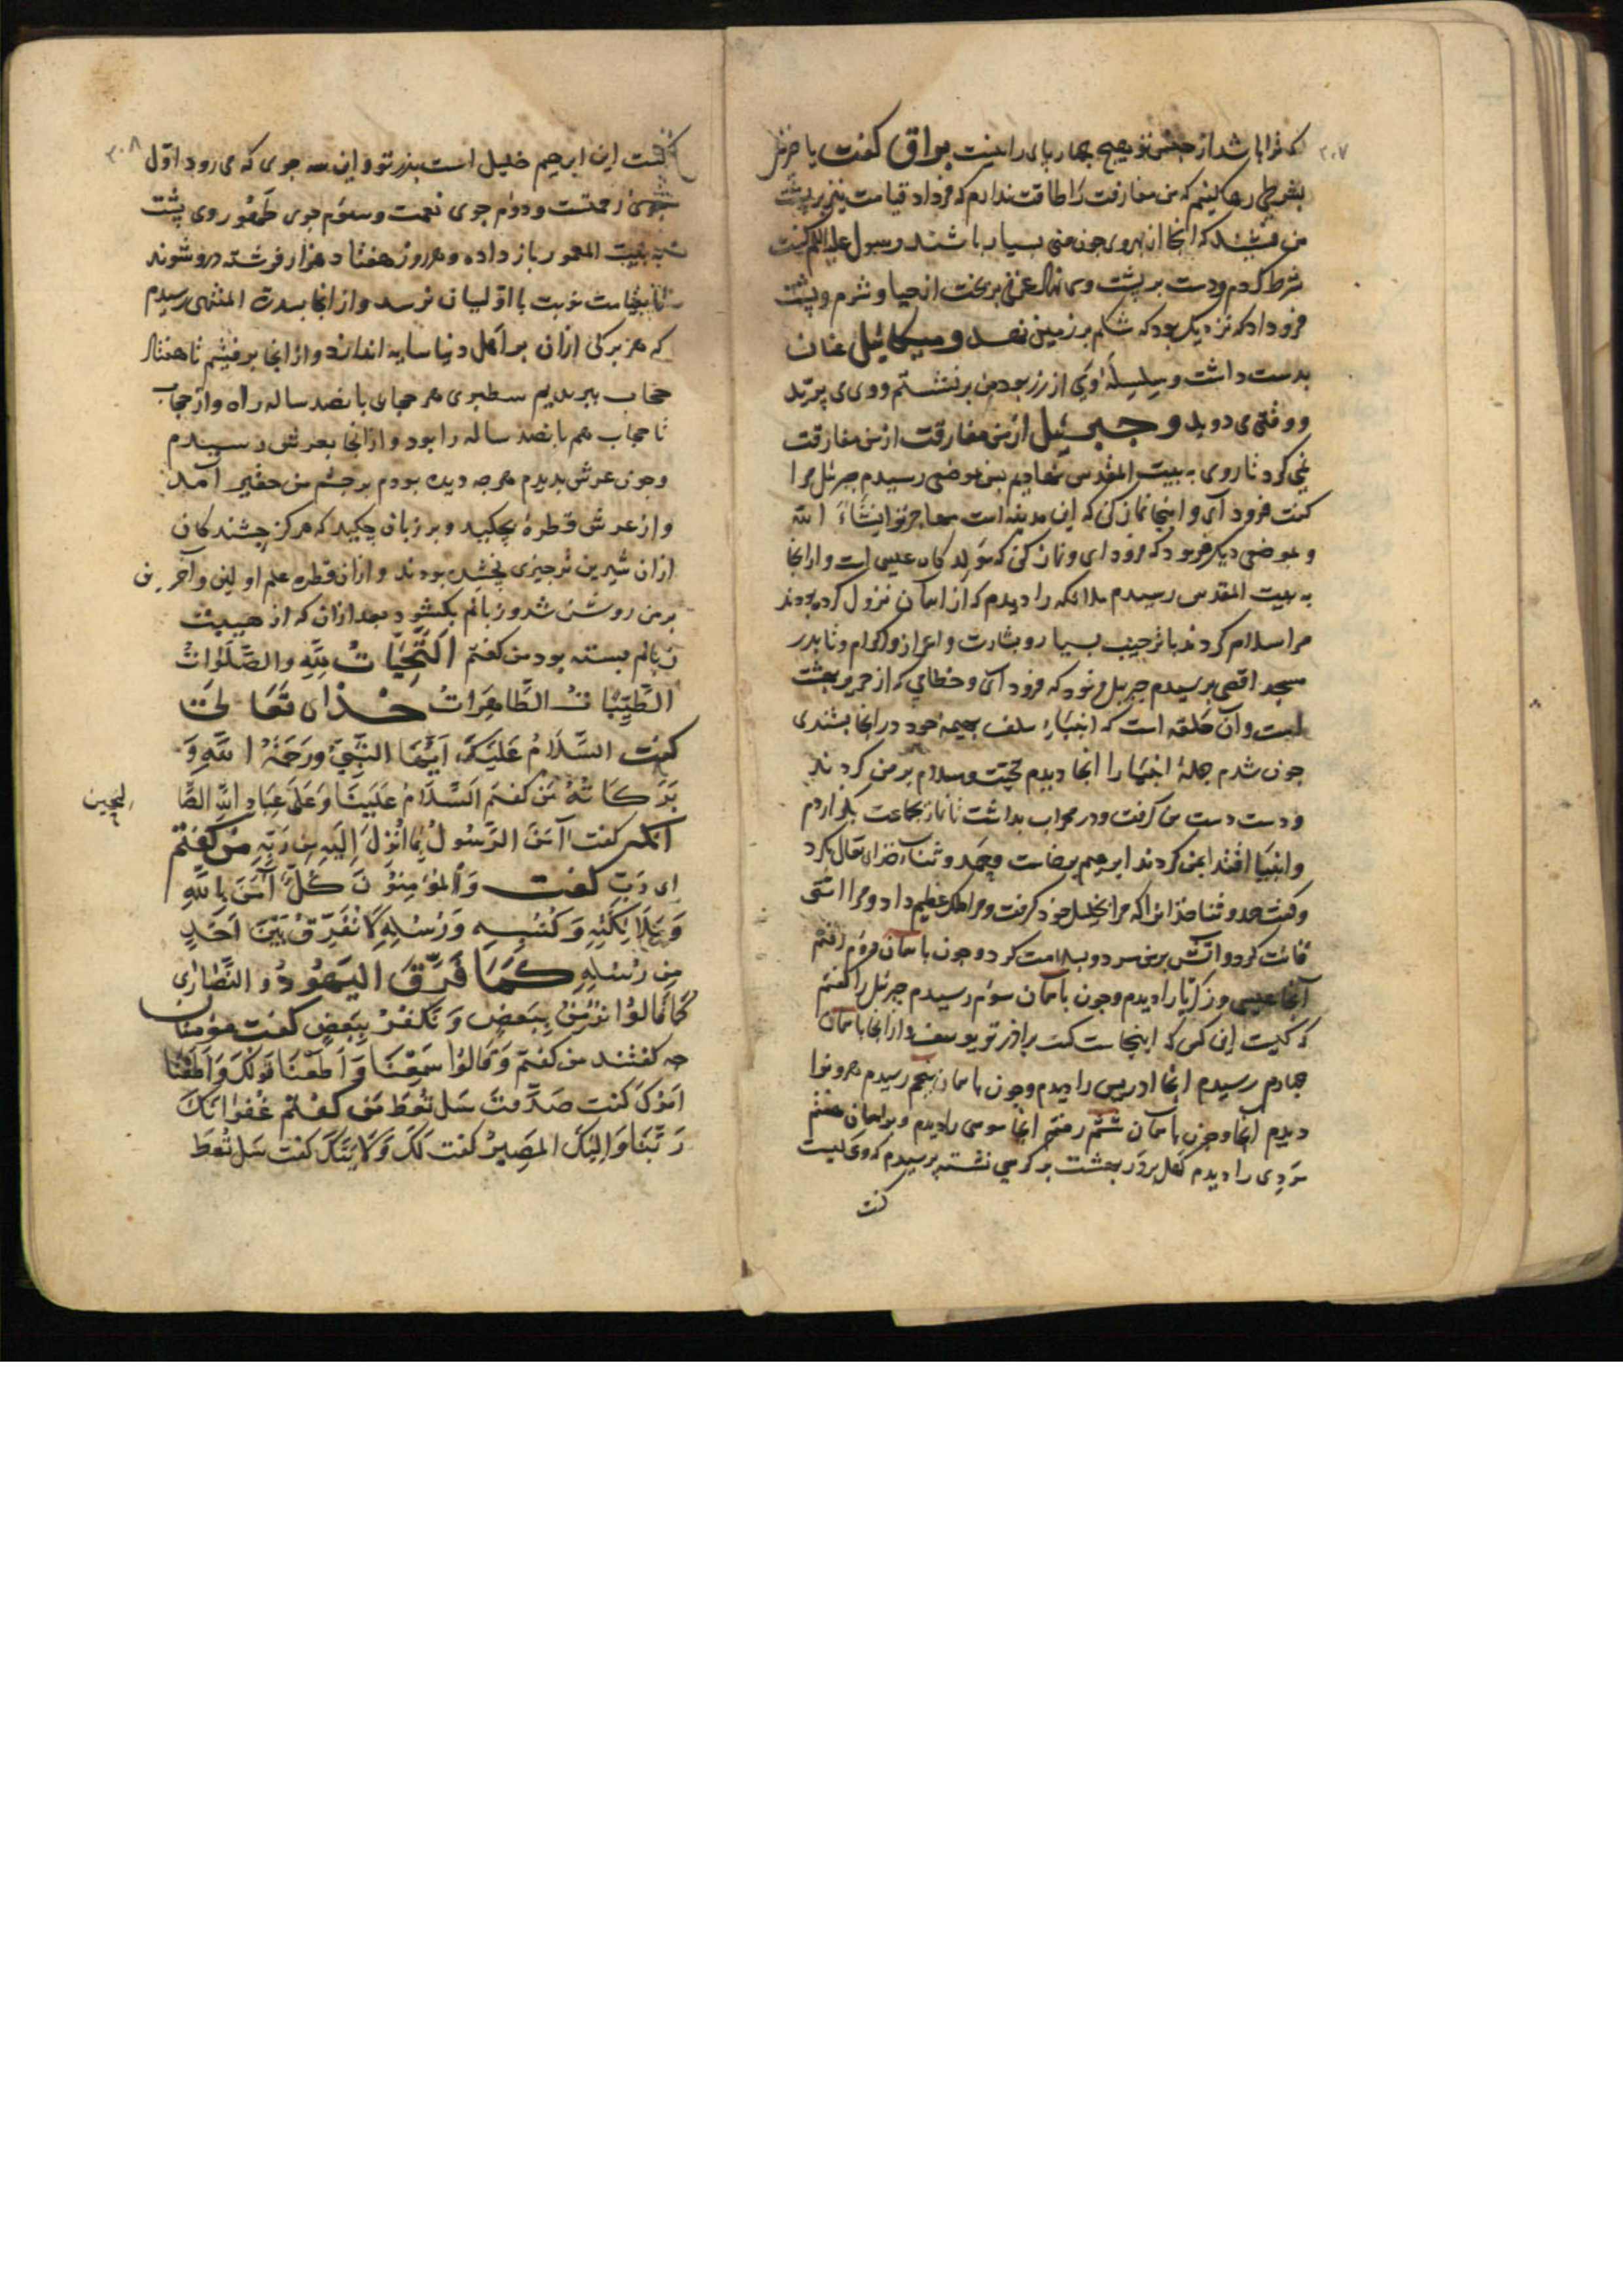 ۲۰۷
که ترا باشد از جنس تو هیچ چهارپای را نیست براق کفت یا جبرئیل
بشرطی رها کنیم که من مفارقت را طاقت ندارم که فردا قیامت نیز بر پشت
من نشیند که انجا از بهر وی چون من بسیار باشند رسول علیه السلم کفت
شرط کردم ودست بر پشت وی عرق بریخت از حیا وشرم وپشت
فرو داد که نزدیک بود که شکم بر زمین نهد ومیکائیل عنان
بدست داشت وسلسله از زر بود من برنشستم ووی می پرید
ووقتی می دوید وجبرئیل از من مفارقت از من مفارقت
نمی کرد تا روی به بیت المقدس نهادیم بموضعی رسیدم جبرئیل مرا
کفت فرود آی واینجا نماز کن که این مدینه است مهاجر تو انشاء الله
وبموضعی دیکر فرمود که فرود ای ونماز کن که مولد کاه عیسی است واز انجا
به بیت المقدس رسیدم ملائکه را دیدم که از اسمان نزول کرده بودند
مرا سلام کردند با ترحیب بسیار وبشارت واعزاز واکرام وتا بدر
مسجد اقصی برسیدم جبریل فرمود که فرود آی وخطامی که از حریر بهشت
است وآن حلقه است که انبیاء سلف بهیمه خود در انجا بستندی
چون شدم جمله انبیا را انجا دیدم تحیت وسلام بر من کردند
ودست دست من کرفت ودر محراب بداشت تا نماز بجماعت بکزاردم
وانبیا اقتدا بمن کردند ابرهیم برخاست وحمد وثناء خدای تعالی بکرد
وکفت حمد وثنا خدایرا که مرا بخلیل خود کرفت ومرا ملک عظیم داد ومرا امتی
قانت کرد واتش بر من سرد وسلامت کرد وچون باسمان دوم رفتم
آنجا عیسی وزکریا را دیدم وچون باسمان سوم رسیدم جبرئیل را کفتم
که کیست این کس که اینجاست کفت برادر تو یوسف واز انجا باسمان
چهارم رسیدم انجا ادریس را دیدم وچون باسمان پنجم رسیدم هرون را
دیدم آنجا وچون باسمان ششم رفتم انجا موسی را دیدم وبر اسمان هفتم
مردی را دیدم کهل بر در بهشت بر کرسی نشسته پرسیدم که وی کیست
کفت
۲۰۸
کفت این ابرهیم خلیل است پدر تو واین سه جوی که می رود اول
جوی رحمتست ودوم جوی نعمت وسوم جوی طهور روی پشت
به بیت المعمور باز داده وهر روز هفتاد هزار فرشته در وشوند
تا بقیامت نوبت با اولیان نرسد واز انجا بسدرة المنتهی رسیدم
که هر برکی ازان بر اهل دنیا سایه اندازد واز انجا برفتیم تا هفتاد
حجاب ببریدیم سطبری هر حجابی پانصد ساله راه واز حجاب
تا حجاب هم پانصد ساله را بود واز انجا بعرش رسیدم
وچون عرش بدیدم هرچه دیده بودم بر چشم من حقیر آمد
واز عرش قطرهٔ بچکید وبر زبان چکید که هرکز چشندکان
ازان شیرین تر چیزی نچشیده بودند وازان قطره علم اولین وآخرین
بر من روشن شد وزبانم بکشود بعد ازان که از هیبت
زبانم بسته بود من کفتم اَلتَّحِيَّاتُ لِلّٰهِ والصَّلَوٰاتُ
الطَّيِّبَاتُ الطَّاهِرَاتُ خدای تعالی
کفت السَّلَامُ عَلَيْكَ اَيُّهَا النَّبِيُّ وَرَحْمَةُ اللهِ وَ
بَرَكَاتُهُ من کفتم اَلسَّلَامُ عَلَيْنَا وَعَلَى عِبَادِ اللهِ الصَّا
لحین
آنکه کفت آمَنَ الرَّسُولُ بِمَا اُنْزِلَ اِلَيْهِ مِن رَبِّهِ من کفتم
ای رب کفت وَالْمُؤْمِنُوْنَ كُلٌّ آمَنَ بِاللهِ
وَمَلَائِكَتِهِ وَكُتُبِهِ وَرُسُلِهِ لَا نُفَرِّقُ بَيْنَ اَحَدٍ
مِن رُسُلِهِ كَمَا فَرَّقَ الْيَهُودُ والنَّصَارَى
كَمَا قَالُوْا نُؤْمِنُ بِبَعْضٍ وَنَكْفُرُ بِبَعْضٍ کفت مؤمنان
چه کفتند من کفتم وَقَالُوْا سَمِعْنَا وَاَطَعْنَا قَوْلَكَ وَاَطَعْنَا
اَمْرَكَ کفت صَدَقْتَ سَلْ تُعْطَ من کفتم غُفْرَانَكَ
رَبَّنَا وَاِلَيْكَ الْمَصِيرُ کفت لَكَ وَلِاُمَّتِكَ کفت سَلْ تُعْطَ